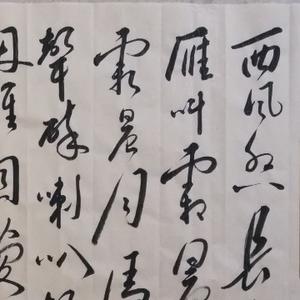 西风烈长
雁叫霜晨
霜晨月马
声碎喇叭